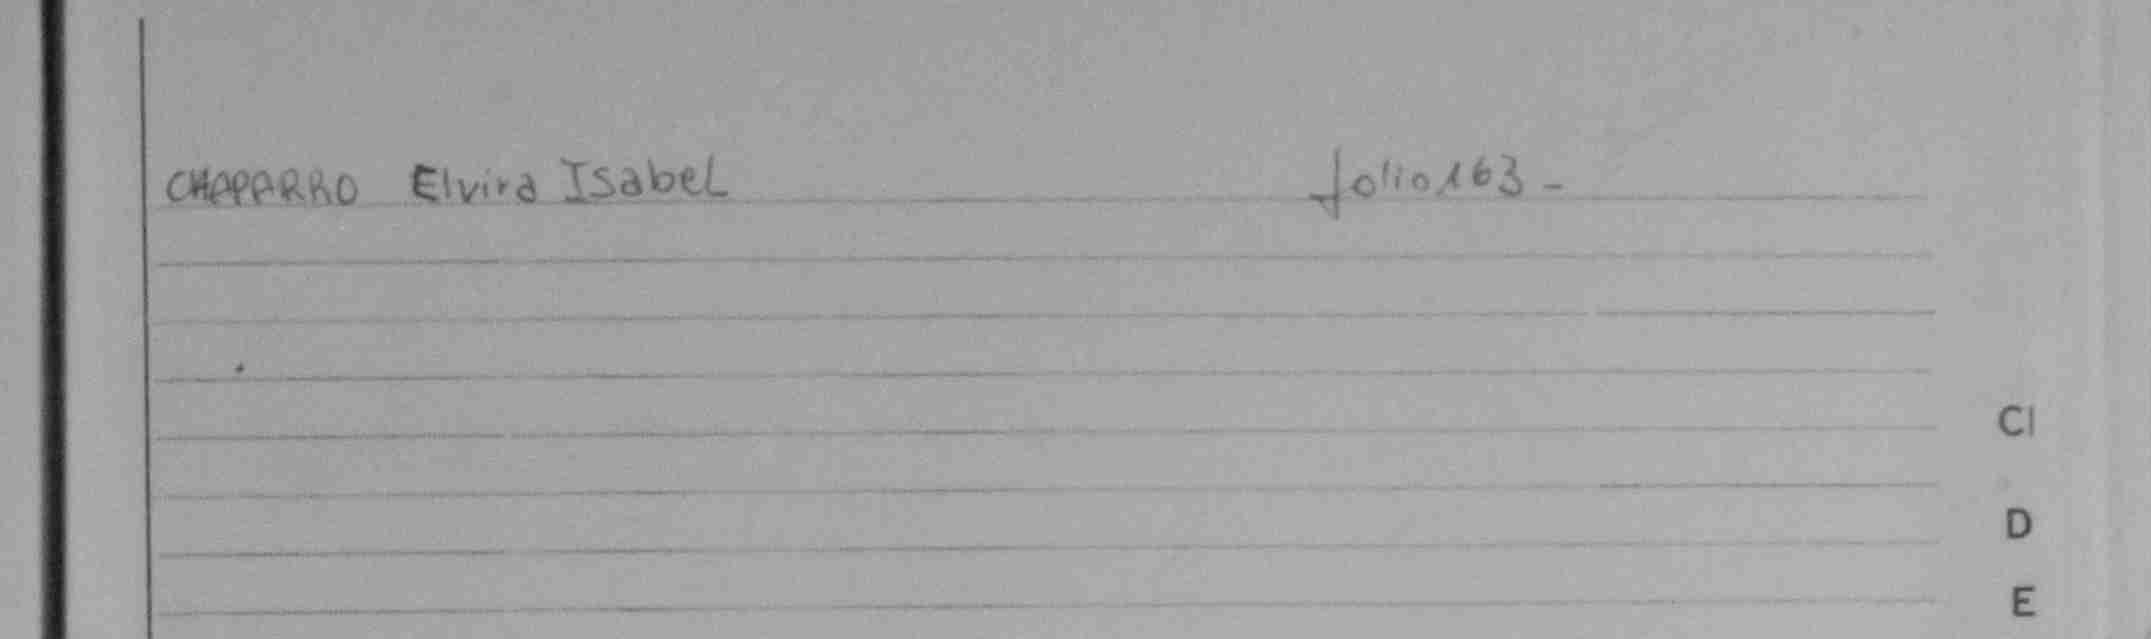 CHAPARRO Elvira Isabel folio 163 -
Cl
D
E